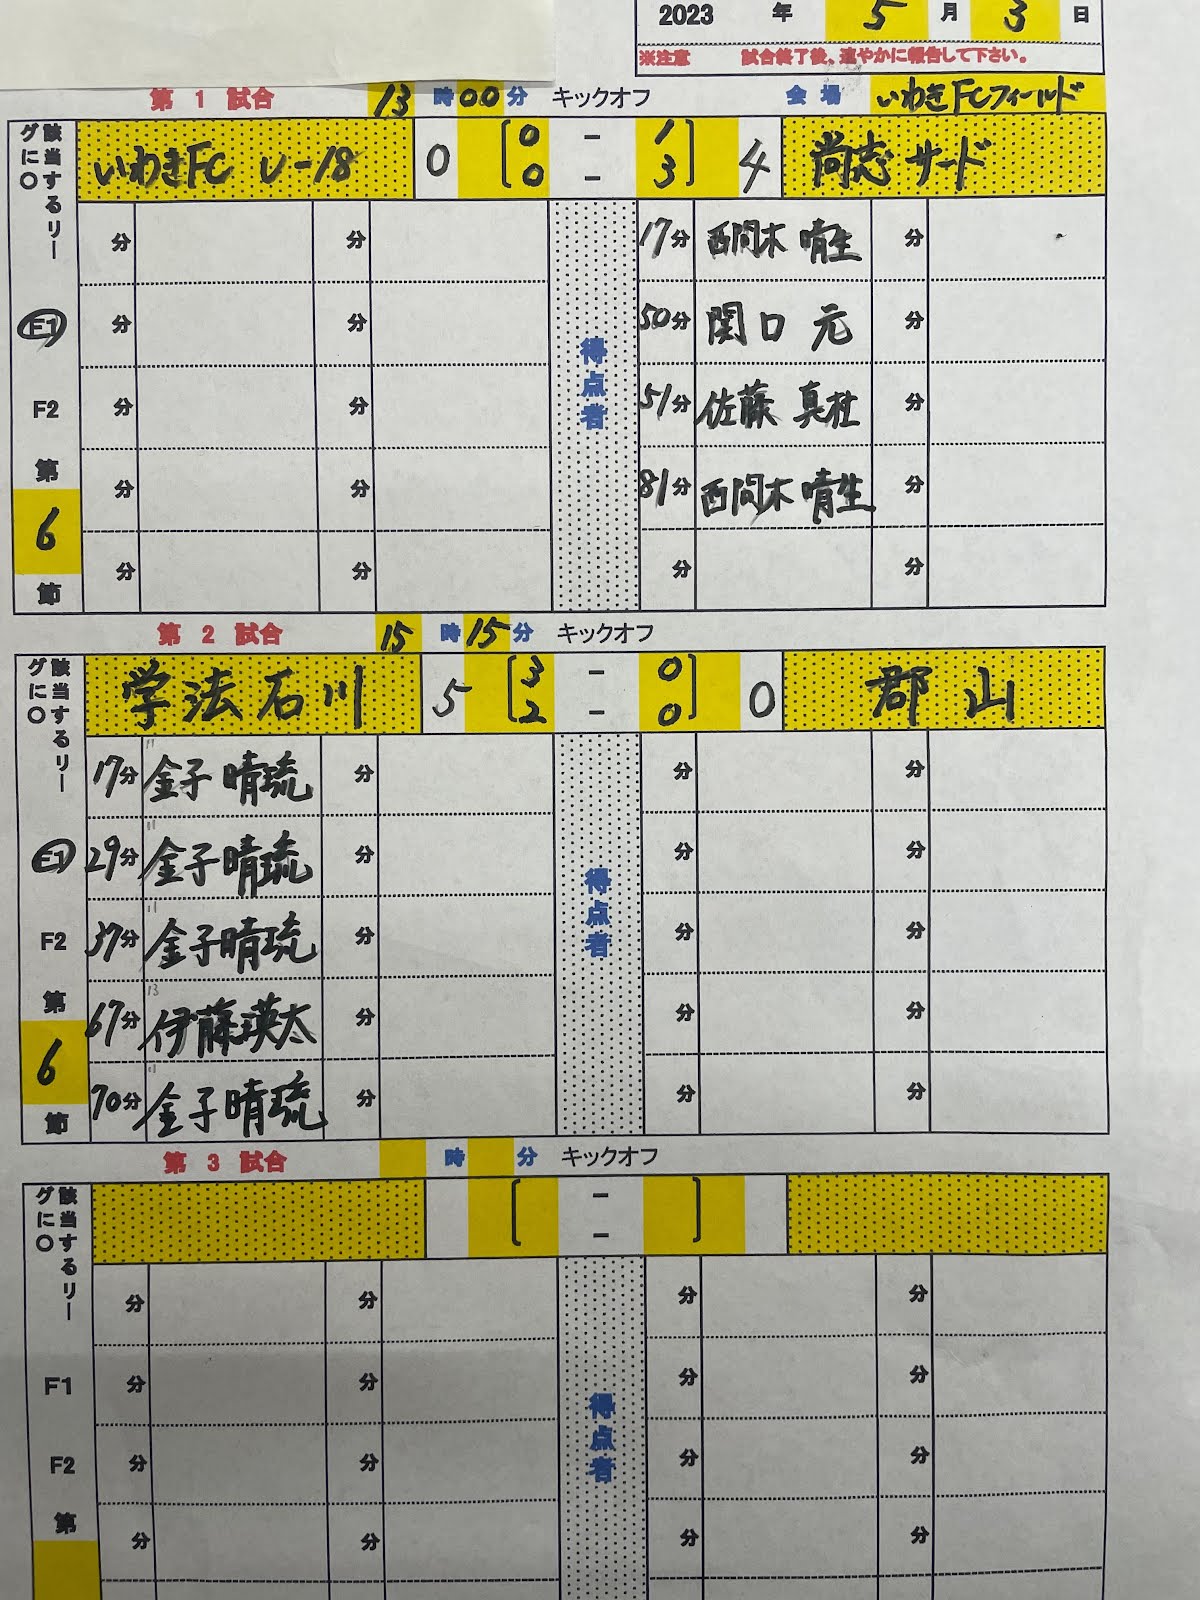 2023 年 5 月 3 日
※注意 試合終了後、速やかに報告して下さい。
第 1 試合 13 時 00 分 キックオフ 会 場 いわきFCフィールド
該当するリーグに〇
いわきFC U-18 0 [0 - 1] 4 尚志 サード
[0 - 3]
分 分 17分 西間木 晴生 分
F1 分 分 50分 関口 元 分
得点者
F2 分 分 51分 佐藤 真杜 分
第
6 分 分 81分 西間木 晴生 分
節 分 分 分 分
第 2 試合 15 時 15 分 キックオフ
該当するリーグに〇
学法石川 5 [3 - 0] 0 郡 山
[2 - 0]
17分 11 金子 晴琉 分 分 分
F1 29分 11 金子 晴琉 分 分 分
得点者
F2 37分 11 金子 晴琉 分 分 分
第
6 67分 13 伊藤瑛太 分 分 分
節 70分 11 金子 晴琉 分 分 分
第 3 試合 時 分 キックオフ
該当するリーグに〇
[ - ]
[ - ]
分 分 分 分
F1 分 分 分 分
得点者
F2 分 分 分 分
第
分 分 分 分